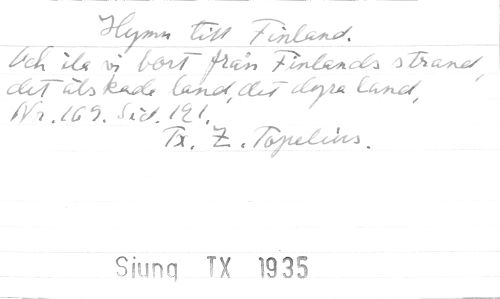 Hymn till Finland.
Och ila vi bort från Finlands strand,
det älskade land, det dyra land,
Nr. 169. Sid. 121.
Tx. Z. Topelius.
Sjung TX 1935